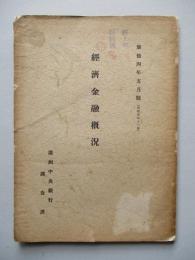 康徳四年五月號
經濟金融概況
滿洲中央銀行
調査課